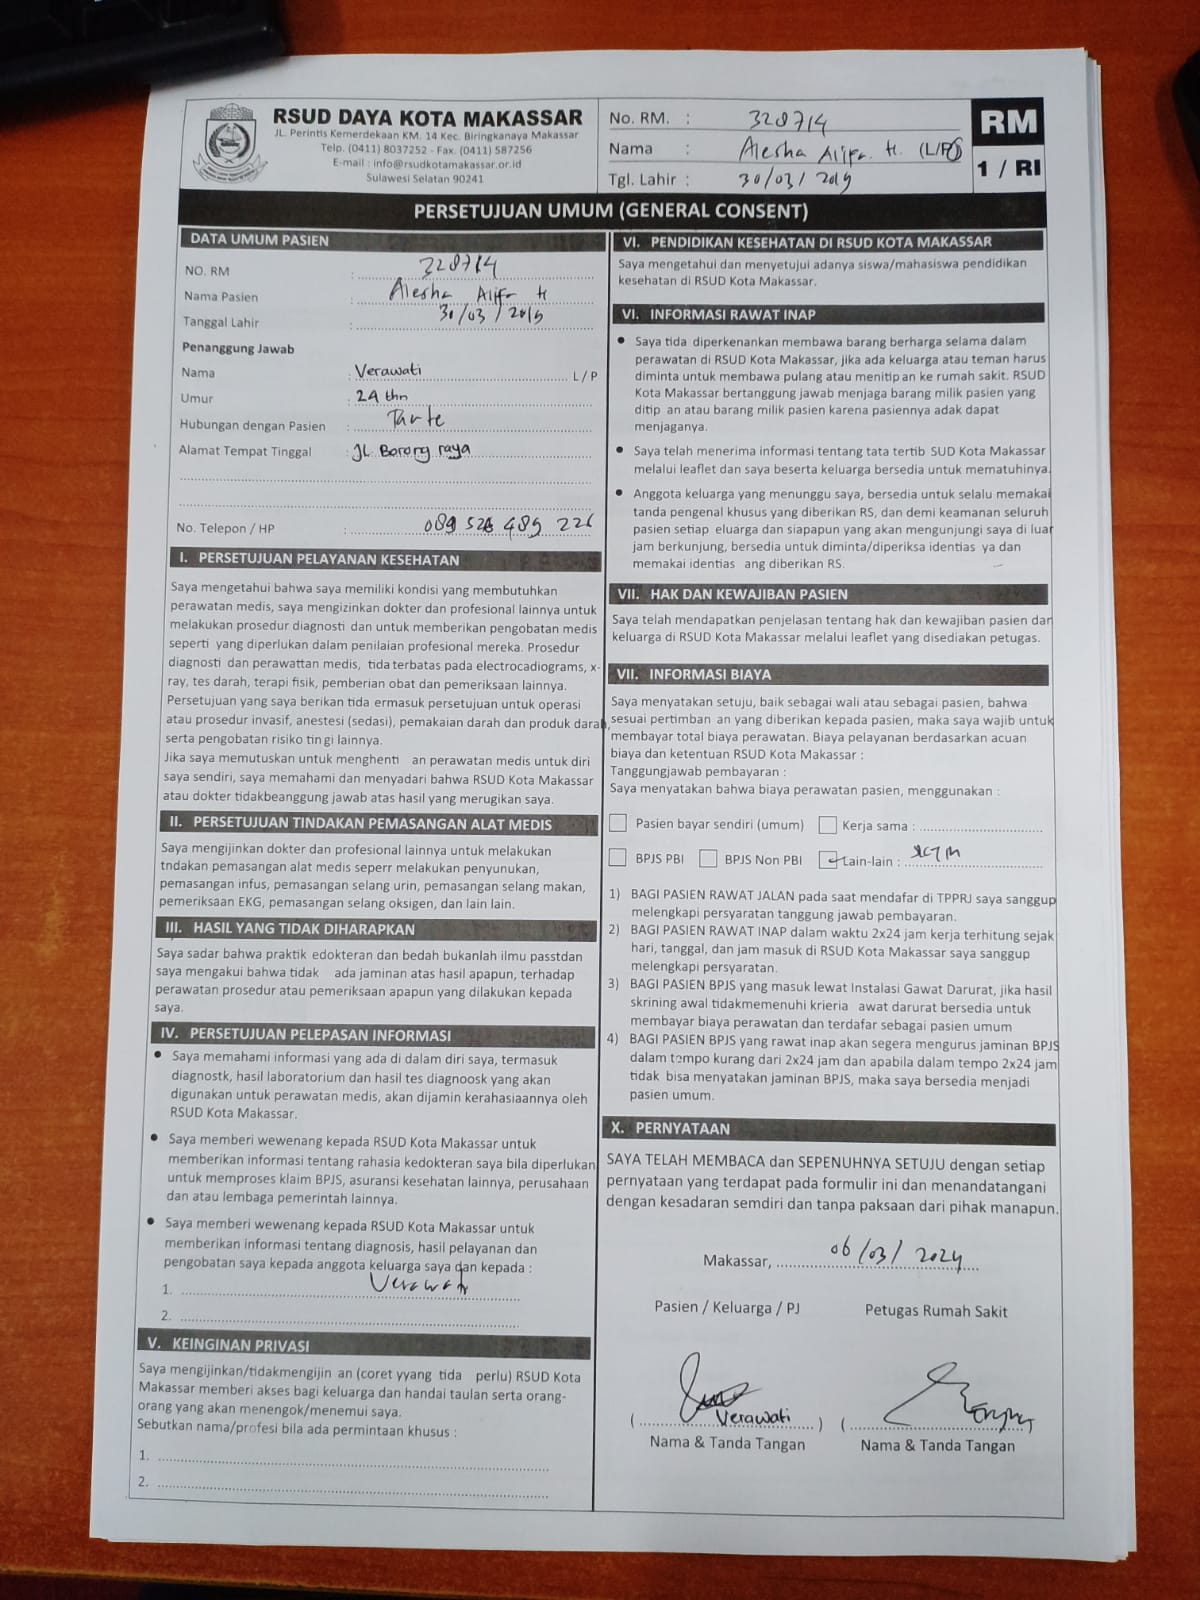 RSUD DAYA KOTA MAKASSAR
JL. Perintis Kemerdekaan KM. 14 Kec. Biringkanaya Makassar
Telp. (0411) 8037252 - Fax. (0411) 587256
E-mail : info@rsudkotamakassar.or.id
Sulawesi Selatan 90241
No. RM. : 328714
Nama : Alesha Alifa. H. (L/P)
Tgl. Lahir : 30/03/2019
RM
1 / RI
PERSETUJUAN UMUM (GENERAL CONSENT)
DATA UMUM PASIEN
NO. RM : 328714
Nama Pasien : Alesha Alifa H
Tanggal Lahir : 30/03/2019
Penanggung Jawab
Nama : Verawati L / P
Umur : 24 thn
Hubungan dengan Pasien : Tante
Alamat Tempat Tinggal : JL. Borong raya
No. Telepon / HP : 089 526 489 226
I. PERSETUJUAN PELAYANAN KESEHATAN
Saya mengetahui bahwa saya memiliki kondisi yang membutuhkan
perawatan medis, saya mengizinkan dokter dan profesional lainnya untuk
melakukan prosedur diagnosti dan untuk memberikan pengobatan medis
seperti yang diperlukan dalam penilaian profesional mereka. Prosedur
diagnosti dan perawattan medis, tida terbatas pada electrocadiograms, x-
ray, tes darah, terapi fisik, pemberian obat dan pemeriksaan lainnya.
Persetujuan yang saya berikan tida ermasuk persetujuan untuk operasi
atau prosedur invasif, anestesi (sedasi), pemakaian darah dan produk darah,
serta pengobatan risiko tingi lainnya.
Jika saya memutuskan untuk menghenti an perawatan medis untuk diri
saya sendiri, saya memahami dan menyadari bahwa RSUD Kota Makassar
atau dokter tidakbeanggung jawab atas hasil yang merugikan saya.
II. PERSETUJUAN TINDAKAN PEMASANGAN ALAT MEDIS
Saya mengijinkan dokter dan profesional lainnya untuk melakukan
tndakan pemasangan alat medis seperr melakukan penyunukan,
pemasangan infus, pemasangan selang urin, pemasangan selang makan,
pemeriksaan EKG, pemasangan selang oksigen, dan lain lain.
III. HASIL YANG TIDAK DIHARAPKAN
Saya sadar bahwa praktik edokteran dan bedah bukanlah ilmu passtdan
saya mengakui bahwa tidak ada jaminan atas hasil apapun, terhadap
perawatan prosedur atau pemeriksaan apapun yang dilakukan kepada
saya.
IV. PERSETUJUAN PELEPASAN INFORMASI
• Saya memahami informasi yang ada di dalam diri saya, termasuk
diagnostk, hasil laboratorium dan hasil tes diagnoosk yang akan
digunakan untuk perawatan medis, akan dijamin kerahasiaannya oleh
RSUD Kota Makassar.
• Saya memberi wewenang kepada RSUD Kota Makassar untuk
memberikan informasi tentang rahasia kedokteran saya bila diperlukan
untuk memproses klaim BPJS, asuransi kesehatan lainnya, perusahaan
dan atau lembaga pemerintah lainnya.
• Saya memberi wewenang kepada RSUD Kota Makassar untuk
memberikan informasi tentang diagnosis, hasil pelayanan dan
pengobatan saya kepada anggota keluarga saya dan kepada :
1. Verawati
2.
V. KEINGINAN PRIVASI
Saya mengijinkan/tidakmengijin an (coret yyang tida perlu) RSUD Kota
Makassar memberi akses bagi keluarga dan handai taulan serta orang-
orang yang akan menengok/menemui saya.
Sebutkan nama/profesi bila ada permintaan khusus :
1.
2.
VI. PENDIDIKAN KESEHATAN DI RSUD KOTA MAKASSAR
Saya mengetahui dan menyetujui adanya siswa/mahasiswa pendidikan
kesehatan di RSUD Kota Makassar.
VI. INFORMASI RAWAT INAP
• Saya tida diperkenankan membawa barang berharga selama dalam
perawatan di RSUD Kota Makassar, jika ada keluarga atau teman harus
diminta untuk membawa pulang atau menitip an ke rumah sakit. RSUD
Kota Makassar bertanggung jawab menjaga barang milik pasien yang
ditip an atau barang milik pasien karena pasiennya adak dapat
menjaganya.
• Saya telah menerima informasi tentang tata tertib SUD Kota Makassar
melalui leaflet dan saya beserta keluarga bersedia untuk mematuhinya.
• Anggota keluarga yang menunggu saya, bersedia untuk selalu memakai
tanda pengenal khusus yang diberikan RS, dan demi keamanan seluruh
pasien setiap eluarga dan siapapun yang akan mengunjungi saya di luar
jam berkunjung, bersedia untuk diminta/diperiksa identias ya dan
memakai identias ang diberikan RS.
VII. HAK DAN KEWAJIBAN PASIEN
Saya telah mendapatkan penjelasan tentang hak dan kewajiban pasien dan
keluarga di RSUD Kota Makassar melalui leaflet yang disediakan petugas.
VII. INFORMASI BIAYA
Saya menyatakan setuju, baik sebagai wali atau sebagai pasien, bahwa
sesuai pertimban an yang diberikan kepada pasien, maka saya wajib untuk
membayar total biaya perawatan. Biaya pelayanan berdasarkan acuan
biaya dan ketentuan RSUD Kota Makassar :
Tanggungjawab pembayaran :
Saya menyatakan bahwa biaya perawatan pasien, menggunakan :
Pasien bayar sendiri (umum) Kerja sama :
BPJS PBI BPJS Non PBI Lain-lain :
1) BAGI PASIEN RAWAT JALAN pada saat mendafar di TPPRJ saya sanggup
melengkapi persyaratan tanggung jawab pembayaran.
2) BAGI PASIEN RAWAT INAP dalam waktu 2x24 jam kerja terhitung sejak
hari, tanggal, dan jam masuk di RSUD Kota Makassar saya sanggup
melengkapi persyaratan.
3) BAGI PASIEN BPJS yang masuk lewat Instalasi Gawat Darurat, jika hasil
skrining awal tidakmemenuhi krieria awat darurat bersedia untuk
membayar biaya perawatan dan terdafar sebagai pasien umum
4) BAGI PASIEN BPJS yang rawat inap akan segera mengurus jaminan BPJS
dalam tempo kurang dari 2x24 jam dan apabila dalam tempo 2x24 jam
tidak bisa menyatakan jaminan BPJS, maka saya bersedia menjadi
pasien umum.
X. PERNYATAAN
SAYA TELAH MEMBACA dan SEPENUHNYA SETUJU dengan setiap
pernyataan yang terdapat pada formulir ini dan menandatangani
dengan kesadaran semdiri dan tanpa paksaan dari pihak manapun.
Makassar, 06/03/2024
Pasien / Keluarga / PJ Petugas Rumah Sakit
( Verawati ) (
Nama & Tanda Tangan Nama & Tanda Tangan